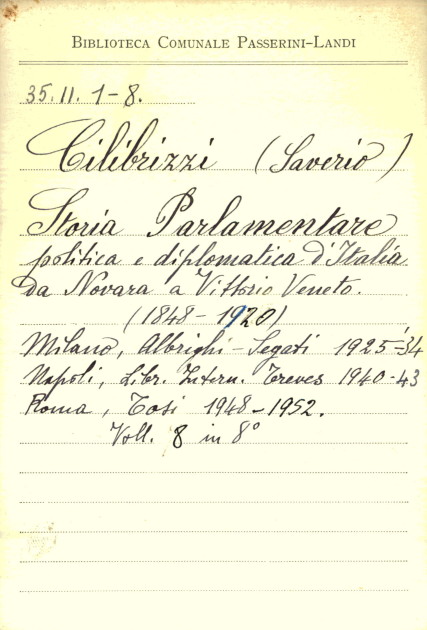 BIBLIOTECA COMUNALE PASSERINI-LANDI
35.II. 1-8.
Cilibrizzi (Saverio)
Storia Parlamentare
politica e diplomatica d'Italia
da Novara a Vittorio Veneto.
(1848-1920)
Milano, Albrighi-Segati 1925-34
Napoli, Libr. Intern. Treves 1940-43
Roma, Tosi 1948-1952.
Voll. 8 in 8°